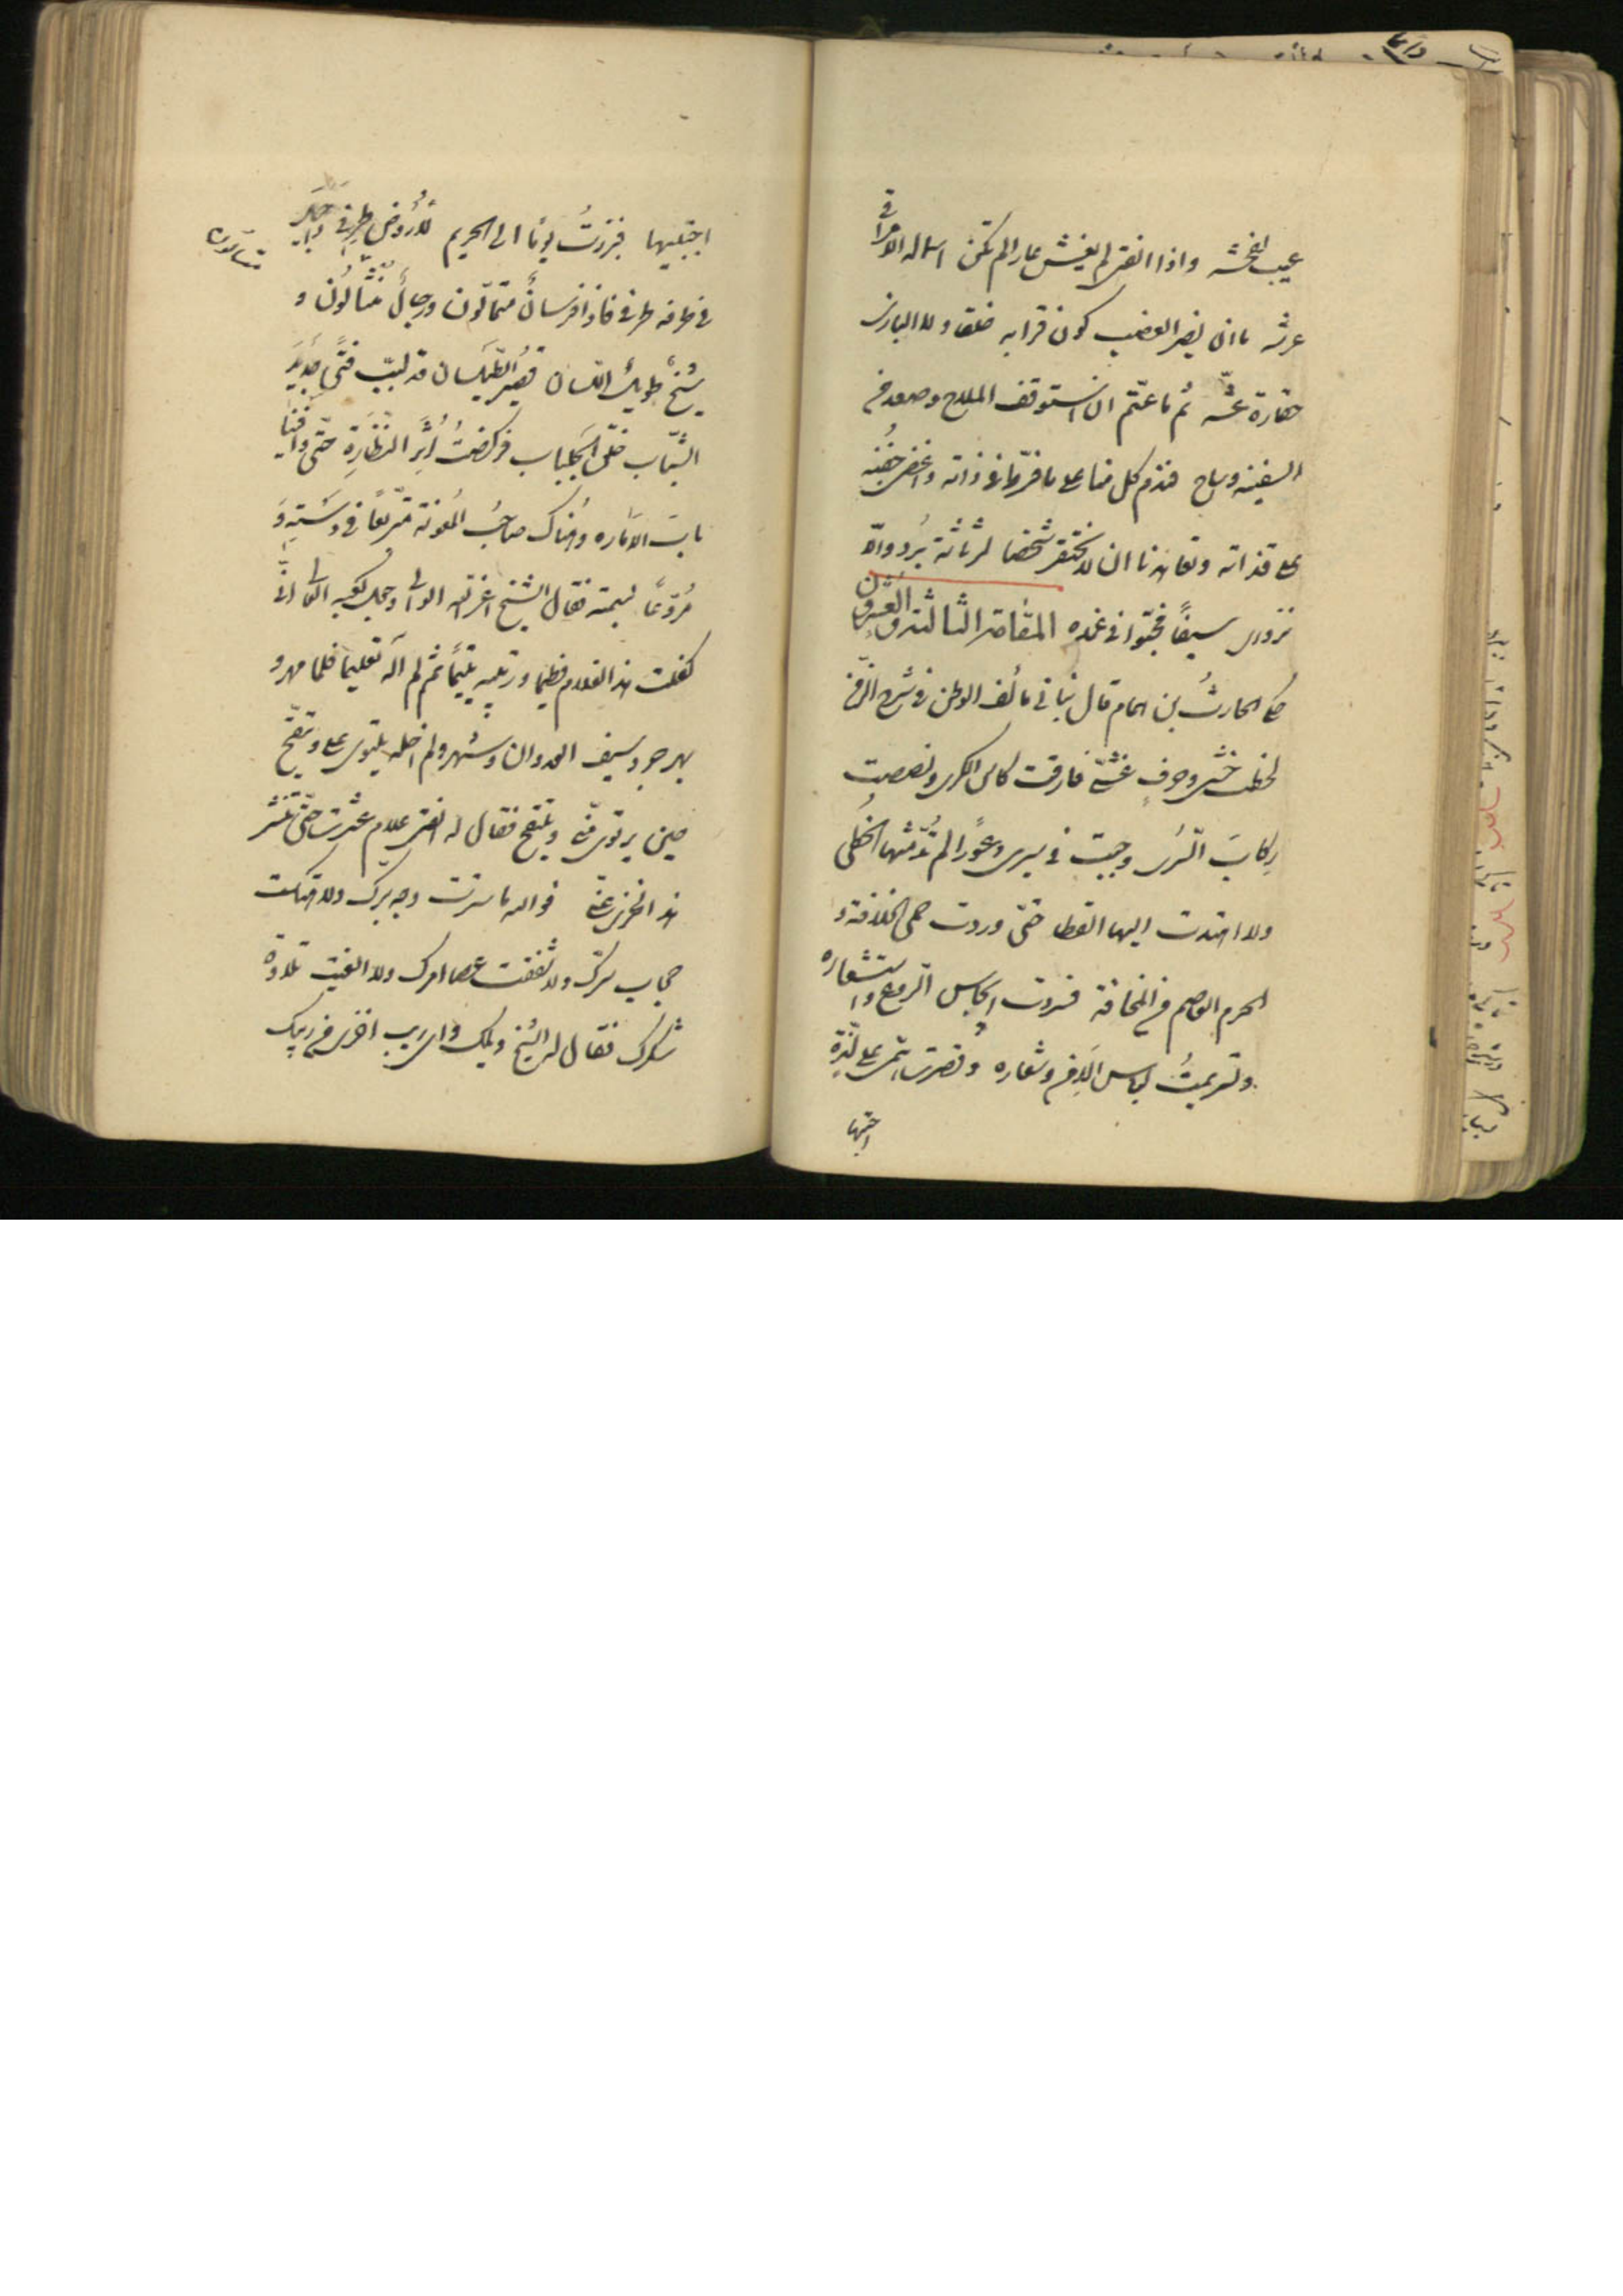 عيب فحشه واذا الفتى لم يغش عارا لم تكن اسماله الا مراقي
عرشه ما ان يضر العضب كون قرابه خلقا ولا البازي
حقارة عشه ثم ما عتم ان استوقف الملاح وصعد من
السفينة وساح فندم كل منا على ما فرط في ذاته واغضى جفنه
على قذاته وتعاهدنا ان لا نحتقر شخصا لرثاثة برده والا
نزدري سيفا مخبوا في غمده المقامة الثالثة والعشرون
حكى الحارث بن همام قال نبا بي مألف الوطن في شرخ الزمن
لخطب خشي وخوف غشي فارقت كاس الكرى ونصصت
ركاب السرى وجبت في سيري وعورا لم تدمثها الخطى
ولا اهتدت اليها القطا حتى وردت حمى الخلافة و
الحرم العاصم من المخافة فسروت ايجاس الروع واستشعاره
وتسربلت لباس الامن وشعاره وقصرت همي على لذة
اجتنيها
اجتليها فبرزت يوما الى الحريم لاروض طرفي واجيل
في طرقه طرفي فاذا فرسان متتالون ورجال منثالون و
شيخ طويل اللسان قصير الطيلسان قد لبب فتى جديد
الشباب خلق الجلباب فركضت اثر النظارة حتى وافينا
باب الامارة وهناك صاحب المعونة متربعا في دسته و
مروعا بسمته فقال الشيخ اعز الله الوالي وجعل كعبه العالي اني
كفلت هذا الغلام فطيما وربيته يتيما ثم لم آله تعليما فلما مهر و
بهر جرد سيف العدوان وشهر ولم اخله يلتوي علي ويتقح
حين يرتوي مني ويلتقح فقال له الفتى علام عثرت حتى تنشر
هذا الخزي عني فوالله ما سترت وجه برك ولا هتكت
حجاب سترك ولا شققت عصا امرك ولا الغيت تلاوة
شكرك فقال له الشيخ ويلك واي ريب اخزى من ريبك